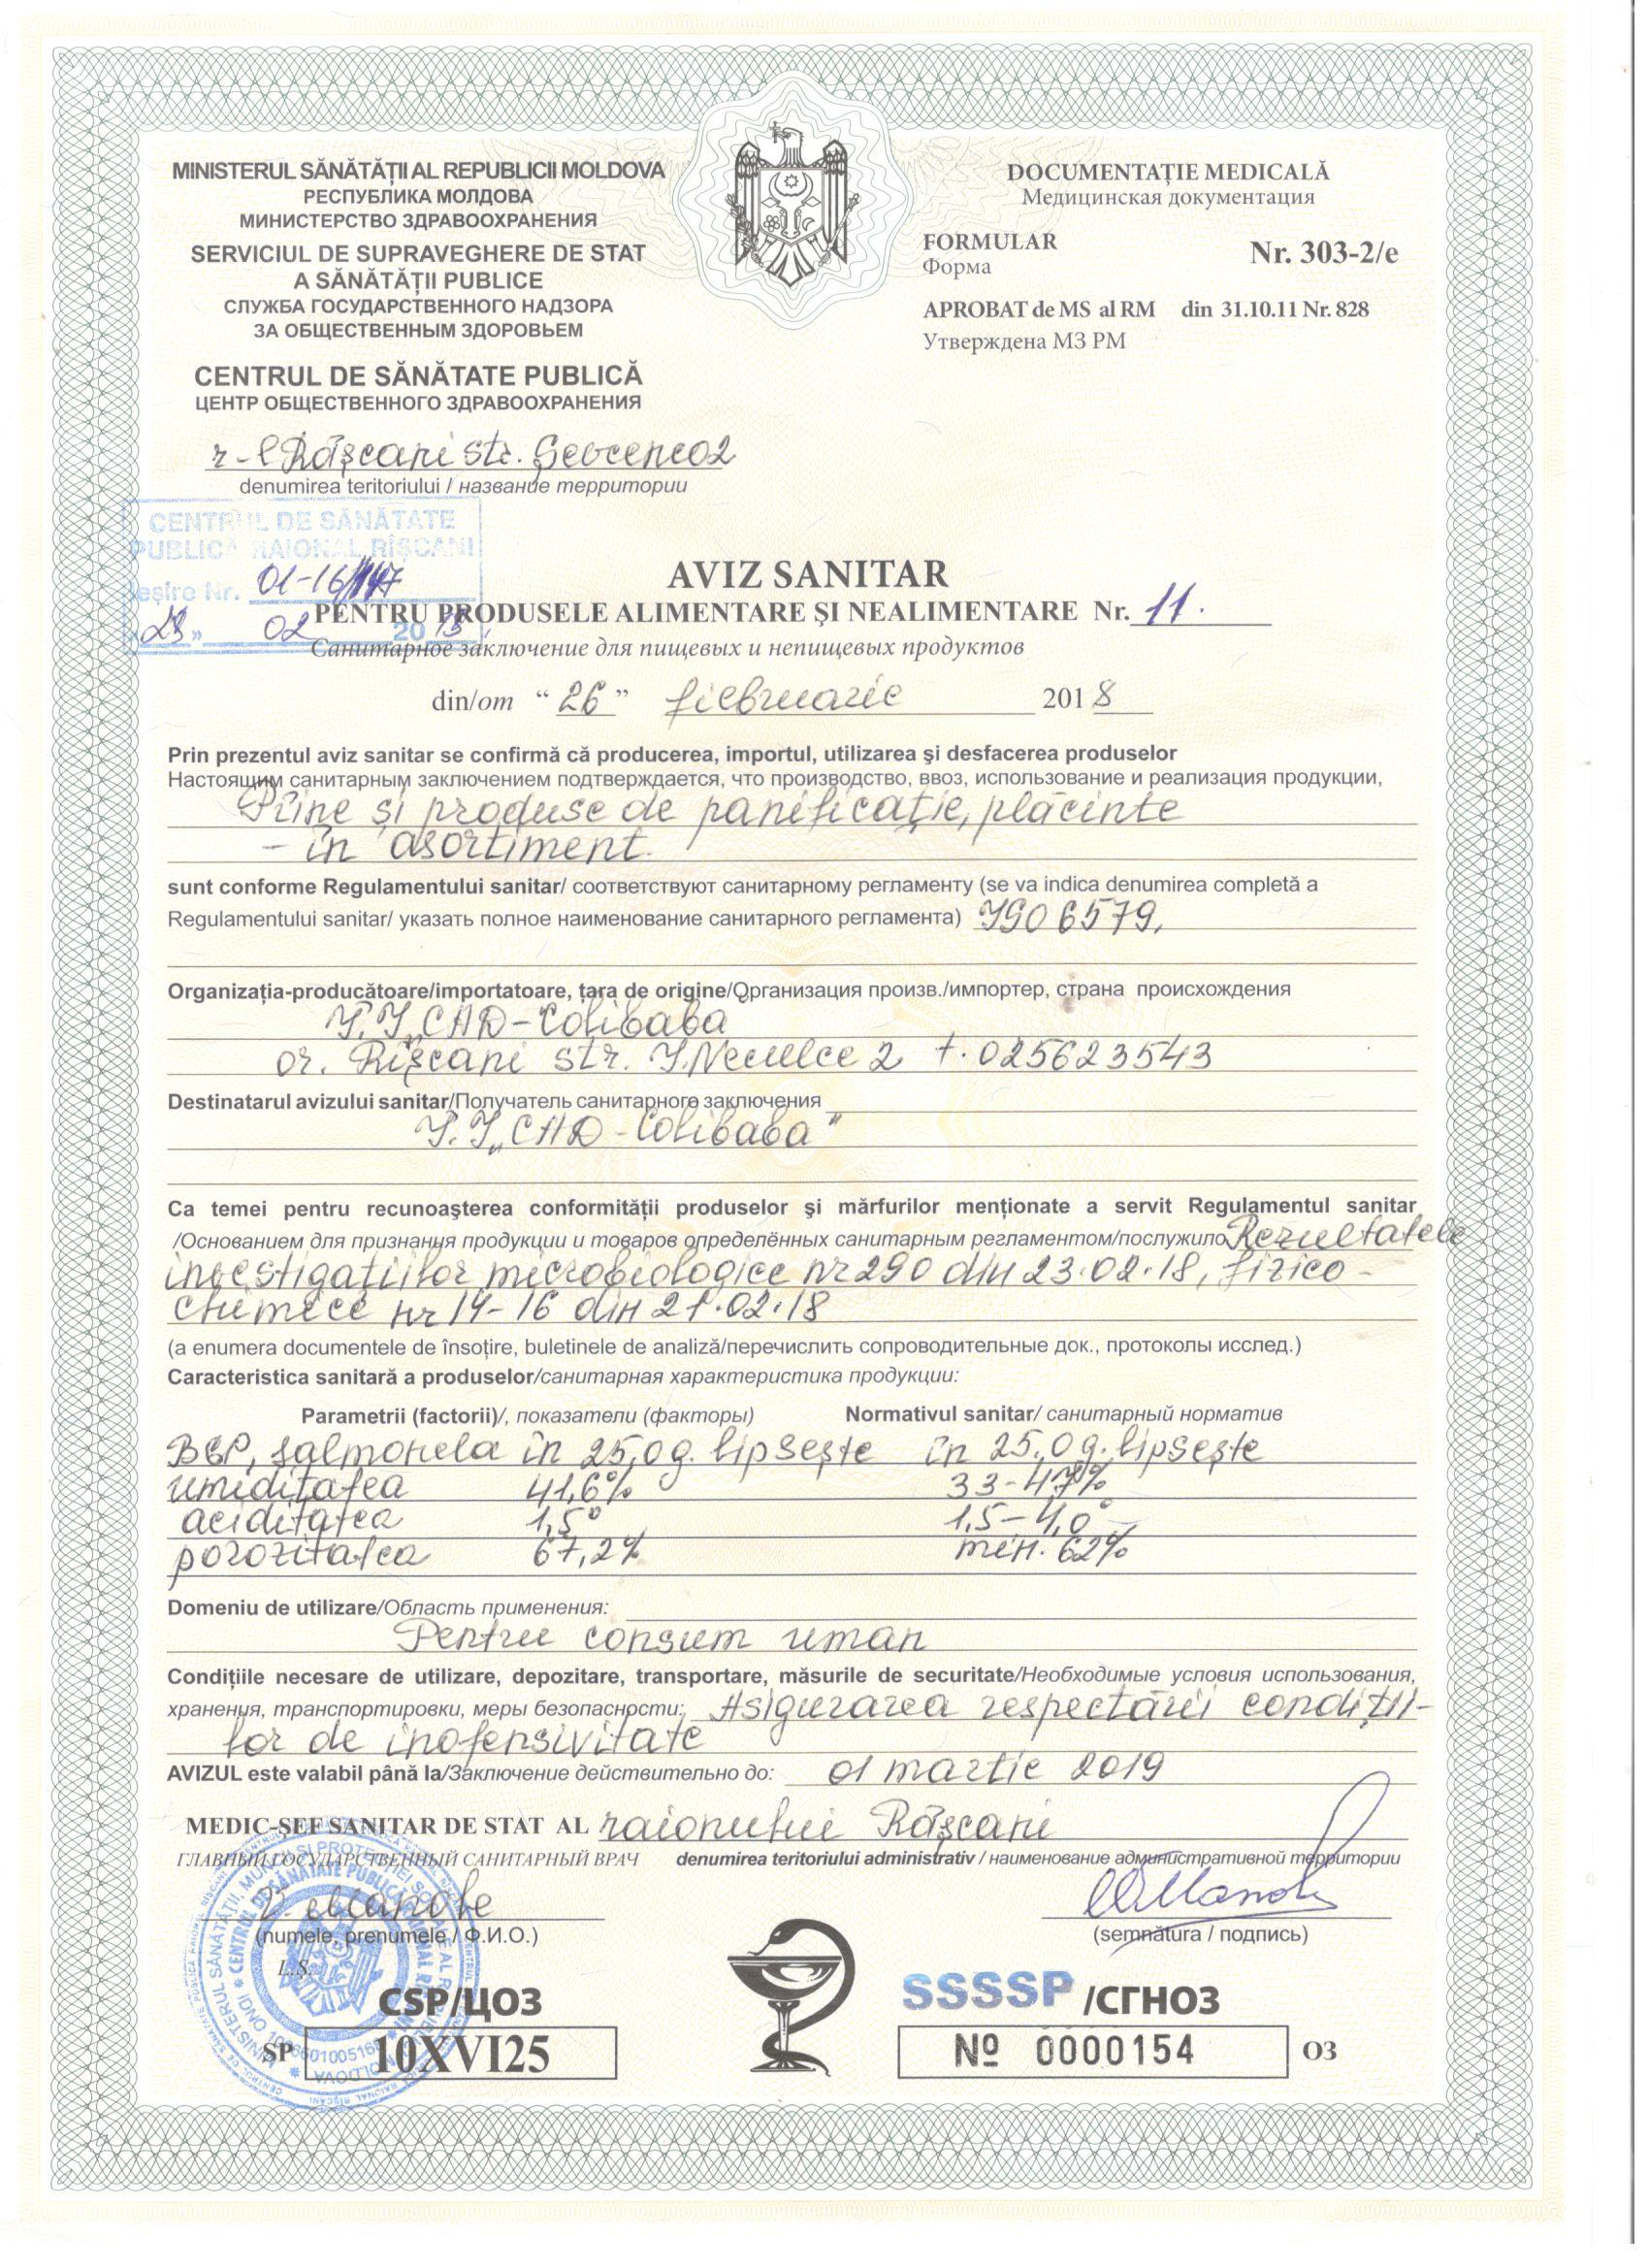 MINISTERUL SĂNĂTĂȚII AL REPUBLICII MOLDOVA
РЕСПУБЛИКА МОЛДОВА
МИНИСТЕРСТВО ЗДРАВООХРАНЕНИЯ
SERVICIUL DE SUPRAVEGHERE DE STAT
A SĂNĂTĂȚII PUBLICE
СЛУЖБА ГОСУДАРСТВЕННОГО НАДЗОРА
ЗА ОБЩЕСТВЕННЫМ ЗДОРОВЬЕМ
CENTRUL DE SĂNĂTATE PUBLICĂ
ЦЕНТР ОБЩЕСТВЕННОГО ЗДРАВООХРАНЕНИЯ
r-l Râşcani str. Şevcenco 2
denumirea teritoriului / название территории
DOCUMENTAŢIE MEDICALĂ
Медицинская документация
FORMULAR Nr. 303-2/e
Форма
APROBAT de MS al RM din 31.10.11 Nr. 828
Утверждена МЗ РМ
CENTRUL DE SĂNĂTATE
PUBLICĂ RAIONAL RÎŞCANI
Ieşire Nr. 01-16/
" " 02 20
AVIZ SANITAR
PENTRU PRODUSELE ALIMENTARE ŞI NEALIMENTARE Nr. 11.
Санитарное заключение для пищевых и непищевых продуктов
din/от "26" fiebruarie 2018
Prin prezentul aviz sanitar se confirmă că producerea, importul, utilizarea şi desfacerea produselor
Настоящим санитарным заключением подтверждается, что производство, ввоз, использование и реализация продукции,
Pîine şi produse de panificaţie, plăcinte
- în asortiment.
sunt conforme Regulamentului sanitar/ соответствуют санитарному регламенту (se va indica denumirea completă a
Regulamentului sanitar/ указать полное наименование санитарного регламента) 06579,
Organizaţia-producătoare/importatoare, ţara de origine/Организация произв./импортер, страна происхождения
Î.I „CAD-Colibaba
or. Rîşcani str. I.Neculce 2 t. 025623543
Destinatarul avizului sanitar/Получатель санитарного заключения
Î.I „CAD-Colibaba"
Ca temei pentru recunoaşterea conformităţii produselor şi mărfurilor menţionate a servit Regulamentul sanitar
/Основанием для признания продукции и товаров определённых санитарным регламентом/послужило Rezultatele
investigaţiilor microbiologice nr 290 din 23.02.18, fizico-
chimece nr 14-16 din 21.02.18
(a enumera documentele de însoţire, buletinele de analiză/перечислить сопроводительные док., протоколы исслед.)
Caracteristica sanitară a produselor/санитарная характеристика продукции:
Parametrii (factorii)/, показатели (факторы) Normativul sanitar/ санитарный норматив
BGP, salmonela în 25,0 g. lipseşte în 25,0 g. lipseşte
umiditatea 41,6% 33-47%
aciditatea 1,5° 1,5-4,0°
porozitatea 67,2% min. 62%
Domeniu de utilizare/Область применения:
Pentru consum uman
Condiţiile necesare de utilizare, depozitare, transportare, măsurile de securitate/Необходимые условия использования,
хранения, транспортировки, меры безопасности: Asigurarea respectării condiţii-
lor de inofensivitate
AVIZUL este valabil până la/Заключение действительно до: 01 martie 2019
MEDIC-ŞEF SANITAR DE STAT AL raionului Râşcani
ГЛАВНЫЙ ГОСУДАРСТВЕННЫЙ САНИТАРНЫЙ ВРАЧ denumirea teritoriului administrativ / наименование административной территории
V. Manole
(numele, prenumele / Ф.И.О.)
(semnătura / подпись)
L.Ş.
CSP/ЦОЗ
SP 10XVI25
SSSSP /СГНОЗ
№ 0000154 ОЗ